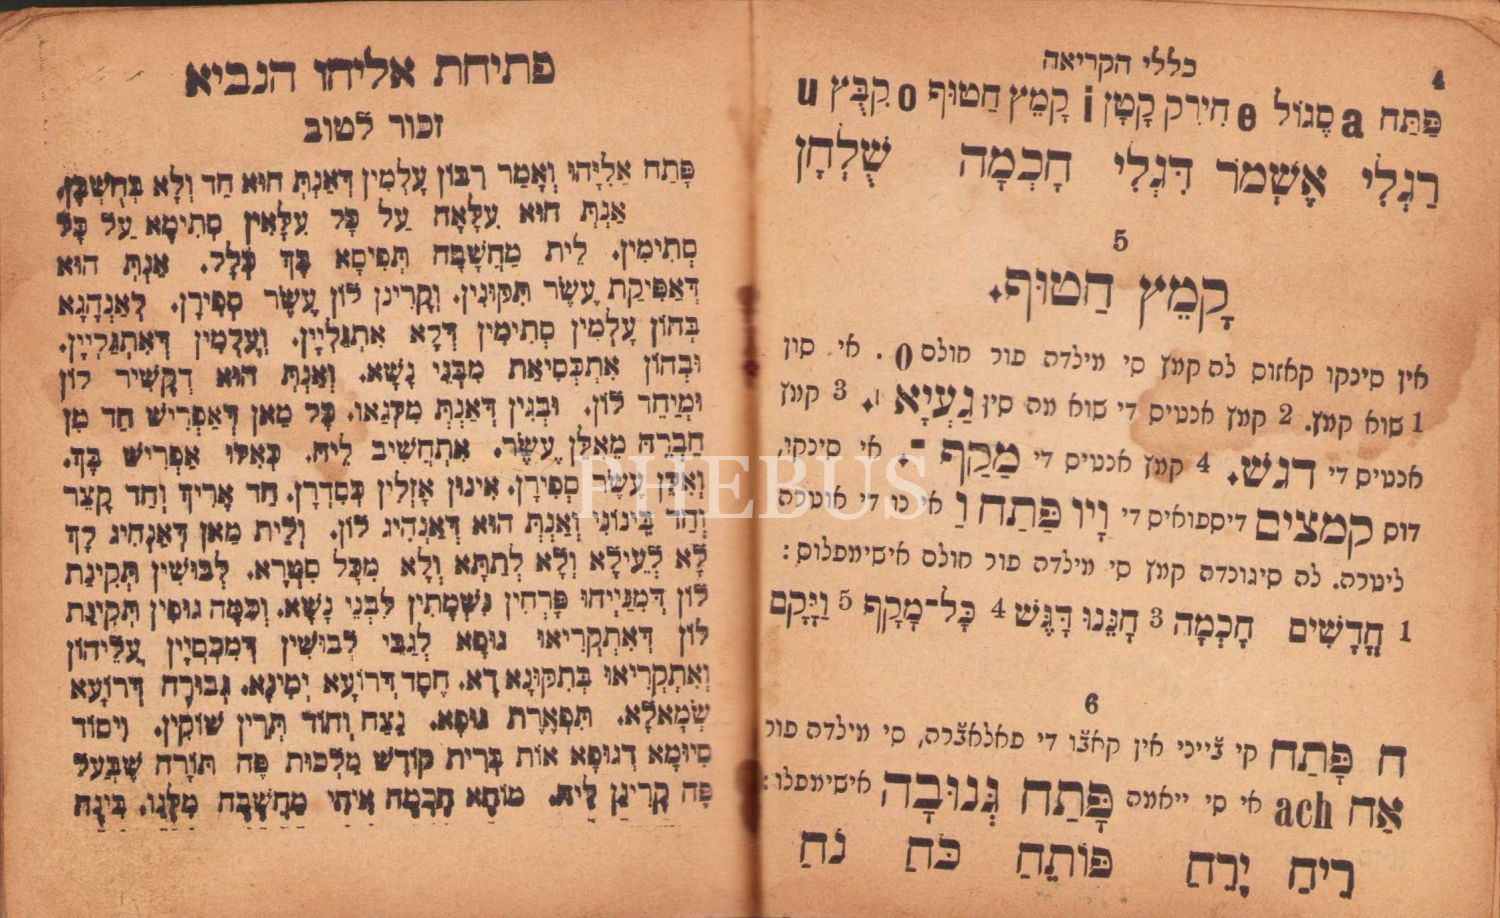 4 כללי הקריאה
פַּתַּח a סֶגוֹל e חִירִק קָטָן i קָמֵץ חַטוּף o קִבֻּץ u
רַגְלָי אֶשְׁמֹר דִּגְלָי חָכְמָה שֻׁלְחָן
5
קָמֵץ חַטוּף.
אין סינקו קאזוס לה קמץ סי מילדה פור חולם o. אי סון
1 שוא קמץ. 2 קמץ אנטיס די שוא מה סין גַעְיָא ׀. 3 קמץ
אנטיס די דגש. 4 קמץ אנטיס די מַקַף ־. אי סינקו,
דוס קמצים דיספואיס די וָיו פַּתַח וַ או כו די אוטרה
ליטרה. לה סיגונדה קמץ סי מילדה פור חולם אישימפלוס:
1 חֳדָשִׁים חָכְמָה 3 חָנֵּנוּ דָּגֵשׁ 4 כָּל־מָקָף 5 וַיָּקָם
6
ח פַּתַח קי ב'ייני אין קאב'ו די פאלאב'רה, סי מילדה פור
אַח ach אי סי ייאמה פַּתַח גְּנוּבָה אישימפלו:
רֵיחַ יָרֵחַ פּוֹתֵחַ כֹּחַ נֹחַ
פתיחת אליהו הנביא
זכור לטוב
פָּתַח אֵלִיָּהוּ וְאָמַר רִבּוֹן עָלְמִין דְּאַנְתְּ הוּא חַד וְלָא בְּחֻשְׁבָּן.
אַנְתְּ הוּא עִלָּאָה עַל כָּל עִלָּאִין סְתִימָא עַל כָּל
סְתִימִין. לֵית מַחֲשָׁבָה תְּפִיסָא בָּךְ כְּלָל. אַנְתְּ הוּא
דְּאַפִּיקַת עֲשֶׂר תִּקּוּנִין. וְקָרִינָן לוֹן עֲשֶׂר סְפִירָן. לְאַנְהָגָא
בְּהוֹן עָלְמִין סְתִימִין דְּלָא אִתְגַּלְיָין. וְעָלְמִין דְּאִתְגַּלְיָין.
וּבְהוֹן אִתְכְּסִיאַת מִבְּנֵי נָשָׁא. וְאַנְתְּ הוּא דְקָשִׁיר לוֹן
וּמְיַחֵד לוֹן. וּבְגִין דְּאַנְתְּ מִלְּגָאו. כָּל מַאן דְּאַפְרִישׁ חַד מִן
חַבְרֵהּ מֵאִלֵּן עֲשֶׂר. אִתְחֲשִׁיב לֵיהּ. כְּאִלּוּ אַפְרִישׁ בָּךְ.
וְאִלֵּן עֲשֶׂר סְפִירָן. אִינוּן אָזְלִין כְּסִדְרָן. חַד אָרִיךְ וְחַד קָצֵר
וְחַד בֵּינוֹנִי וְאַנְתְּ הוּא דְּאַנְהִיג לוֹן. וְלֵית מַאן דְּאַנְהִיג לָךְ
לָא לְעֵילָא וְלָא לְתַתָּא וְלָא מִכָּל סִטְרָא. לְבוּשִׁין תְּקִינַת
לוֹן דְּמִנַּיְיהוּ פָּרְחִין נִשְׁמָתִין לִבְנֵי נָשָׁא. וְכַמָּה גוּפִין תְּקִינַת
לוֹן דְּאִתְקְרִיאוּ גוּפָא לְגַבֵּי לְבוּשִׁין דְּמִכְסְיָין עֲלֵיהוֹן
וְאִתְקְרִיאוּ בְּתִקּוּנָא דָא. חֶסֶד דְּרוֹעָא יְמִינָא. גְּבוּרָה דְּרוֹעָא
שְׂמָאלָא. תִּפְאֶרֶת גּוּפָא. נֶצַח וְהוֹד תְּרֵין שׁוֹקִין. וִיסוֹד
סִיּוּמָא דְגוּפָא אוֹת בְּרִית קוֹדֶשׁ מַלְכוּת פֶּה תּוֹרָה שֶׁבְּעַל
פֶּה קָרִינַן לֵיהּ. מוֹחָא חָכְמָה אִיהִי מַחֲשָׁבָה מִלְּגָו. בִּינָה
PHEBUS